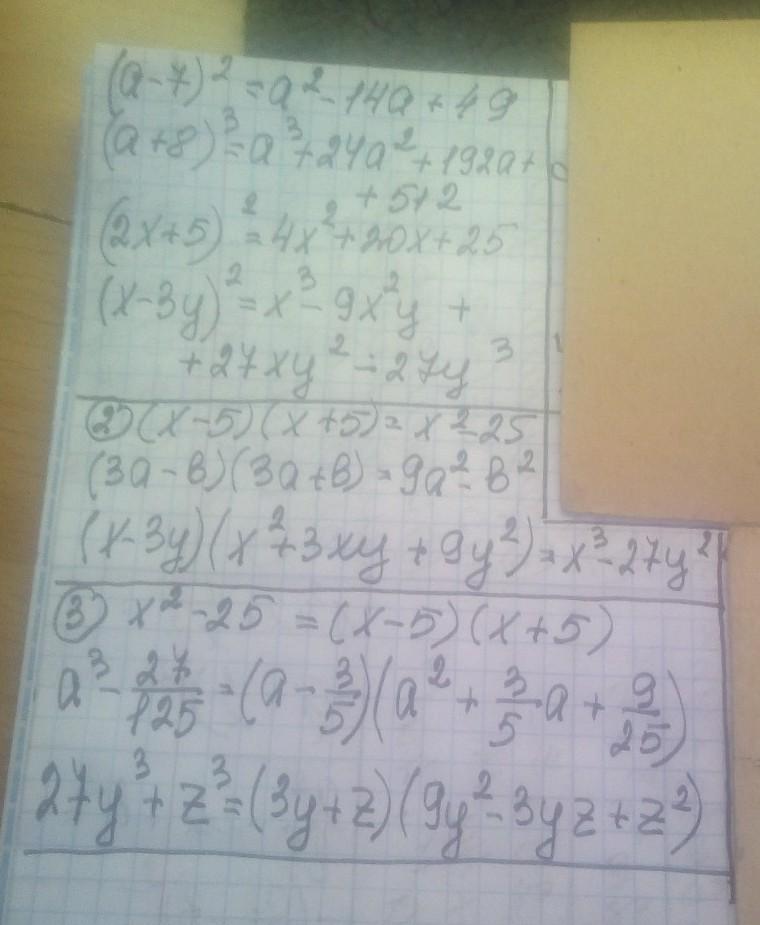 (a-7)² = a² - 14a + 49
(a+8)³ = a³ + 24a² + 192a +
+ 512
(2x+5)² = 4x² + 20x + 25
(x-3y)² = x³ - 9x²y +
+ 27xy² - 27y³
② (x-5)(x+5) = x² - 25
(3a-в)(3a+в) = 9a² - в²
(x-3y)(x² + 3xy + 9y²) = x³ - 27y²
③ x² - 25 = (x-5)(x+5)
a³ - 27/125 = (a - 3/5)(a² + 3/5 a + 9/25)
27y³ + z³ = (3y+z)(9y² - 3yz + z²)